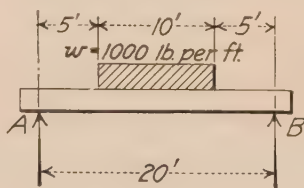 5' 10' 5'
w=1000 lb. per ft.
A B
20'